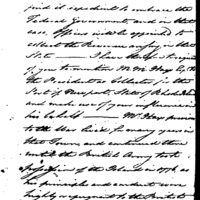 find it expedient to embrace the
Federal Government, and in that
case, Officers will be appointed to
collect the Revenue arising in that
State — I have therefore to request
of your M. M. Hays Esq.
the President a Collector in the
Port of Newport, State of Rhode Island
and make use of your influence in
his behalf — Mr Hays previous
to the War lived for many years in
that Town, and continued there
until the British Army took
possession of the Island in 1776, as
his principles and conduct were
highly repugnant to the British